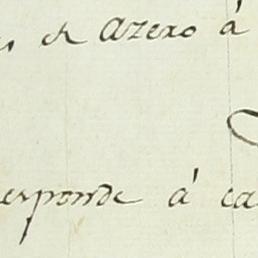 de azero á
esponde á ca